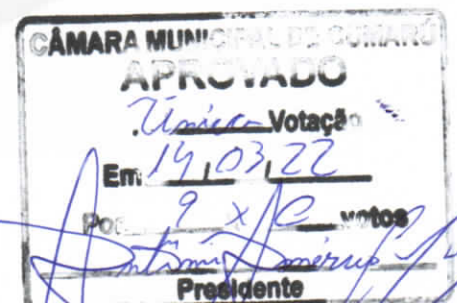 CÂMARA MUNICIPAL DE CUMARÚ
APROVADO
Única Votação
Em 14 / 03 / 22
Por 9 x 0 votos
Presidente